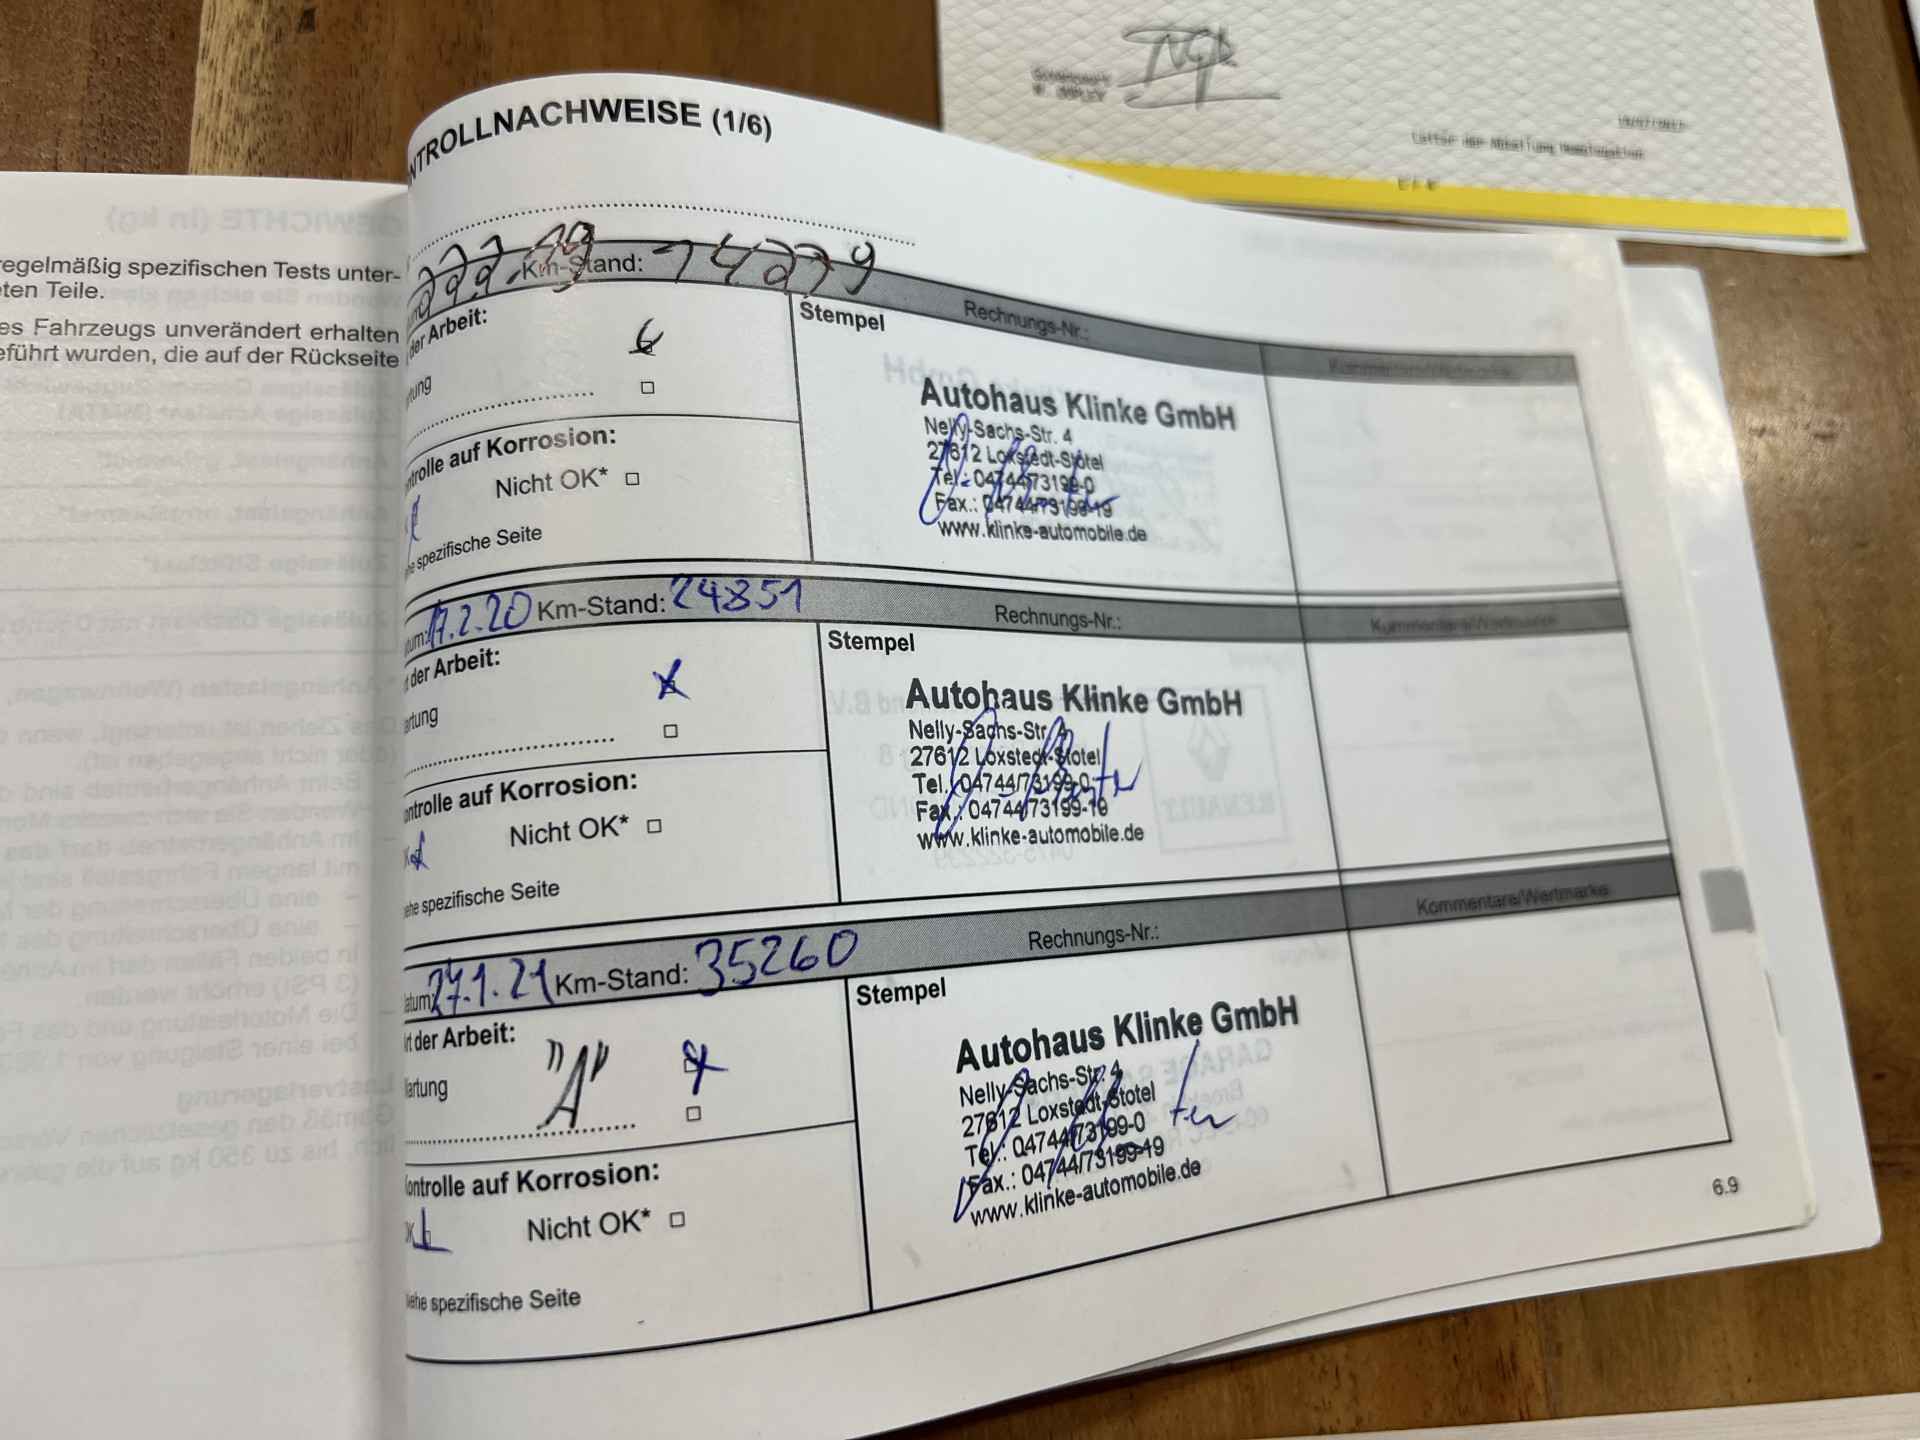 regelmäßig spezifischen Tests unter-
eten Teile.
es Fahrzeugs unverändert erhalten
eführt wurden, die auf der Rückseite
NTROLLNACHWEISE (1/6)
Km-Stand: 14279
Rechnungs-Nr.:
Kommentare/Wertmarke
der Arbeit:
Stempel
rtung
ntrolle auf Korrosion:
Nicht OK*
he spezifische Seite
Autohaus Klinke GmbH
Nelly-Sachs-Str. 4
27612 Loxstedt-Stotel
Tel.: 04744/73199-0
Fax.: 04744/73199-19
www.klinke-automobile.de
tum: 17.2.20 Km-Stand: 24851
Rechnungs-Nr.:
Kommentare/Wertmarke
t der Arbeit:
Stempel
artung
ontrolle auf Korrosion:
Nicht OK*
ehe spezifische Seite
Autohaus Klinke GmbH
Nelly-Sachs-Str. 4
27612 Loxstedt-Stotel
Tel.: 04744/73199-0
Fax.: 04744/73199-19
www.klinke-automobile.de
atum: 27.1.21 Km-Stand: 35260
Rechnungs-Nr.:
Kommentare/Wertmarke
rt der Arbeit:
Stempel
Wartung
"A"
Kontrolle auf Korrosion:
OK
Nicht OK*
iehe spezifische Seite
Autohaus Klinke GmbH
Nelly-Sachs-Str. 4
27612 Loxstedt-Stotel
Tel.: 04744/73199-0
Fax.: 04744/73199-19
www.klinke-automobile.de
6.9